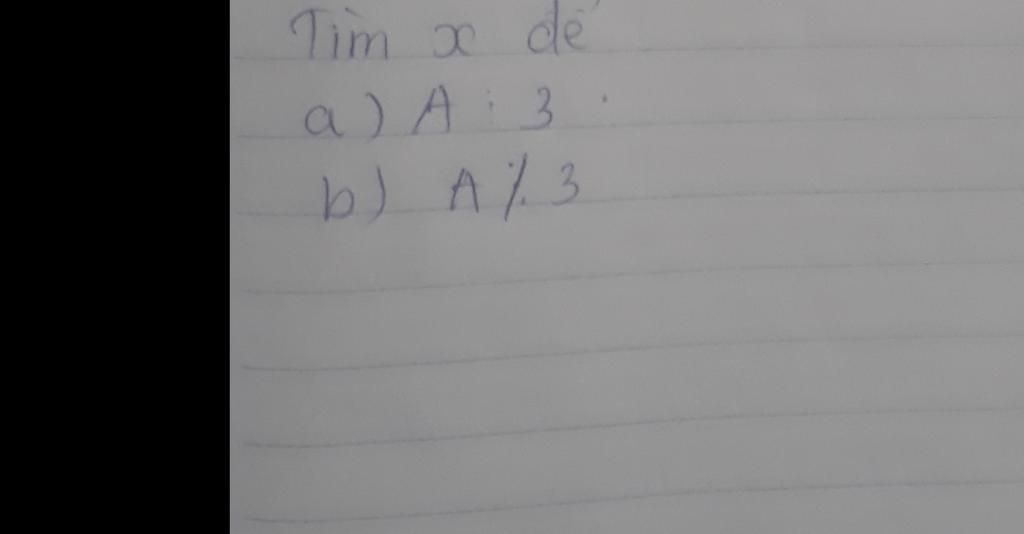 Tìm x để
a) A ⋮ 3.
b) A ⋮̸ 3